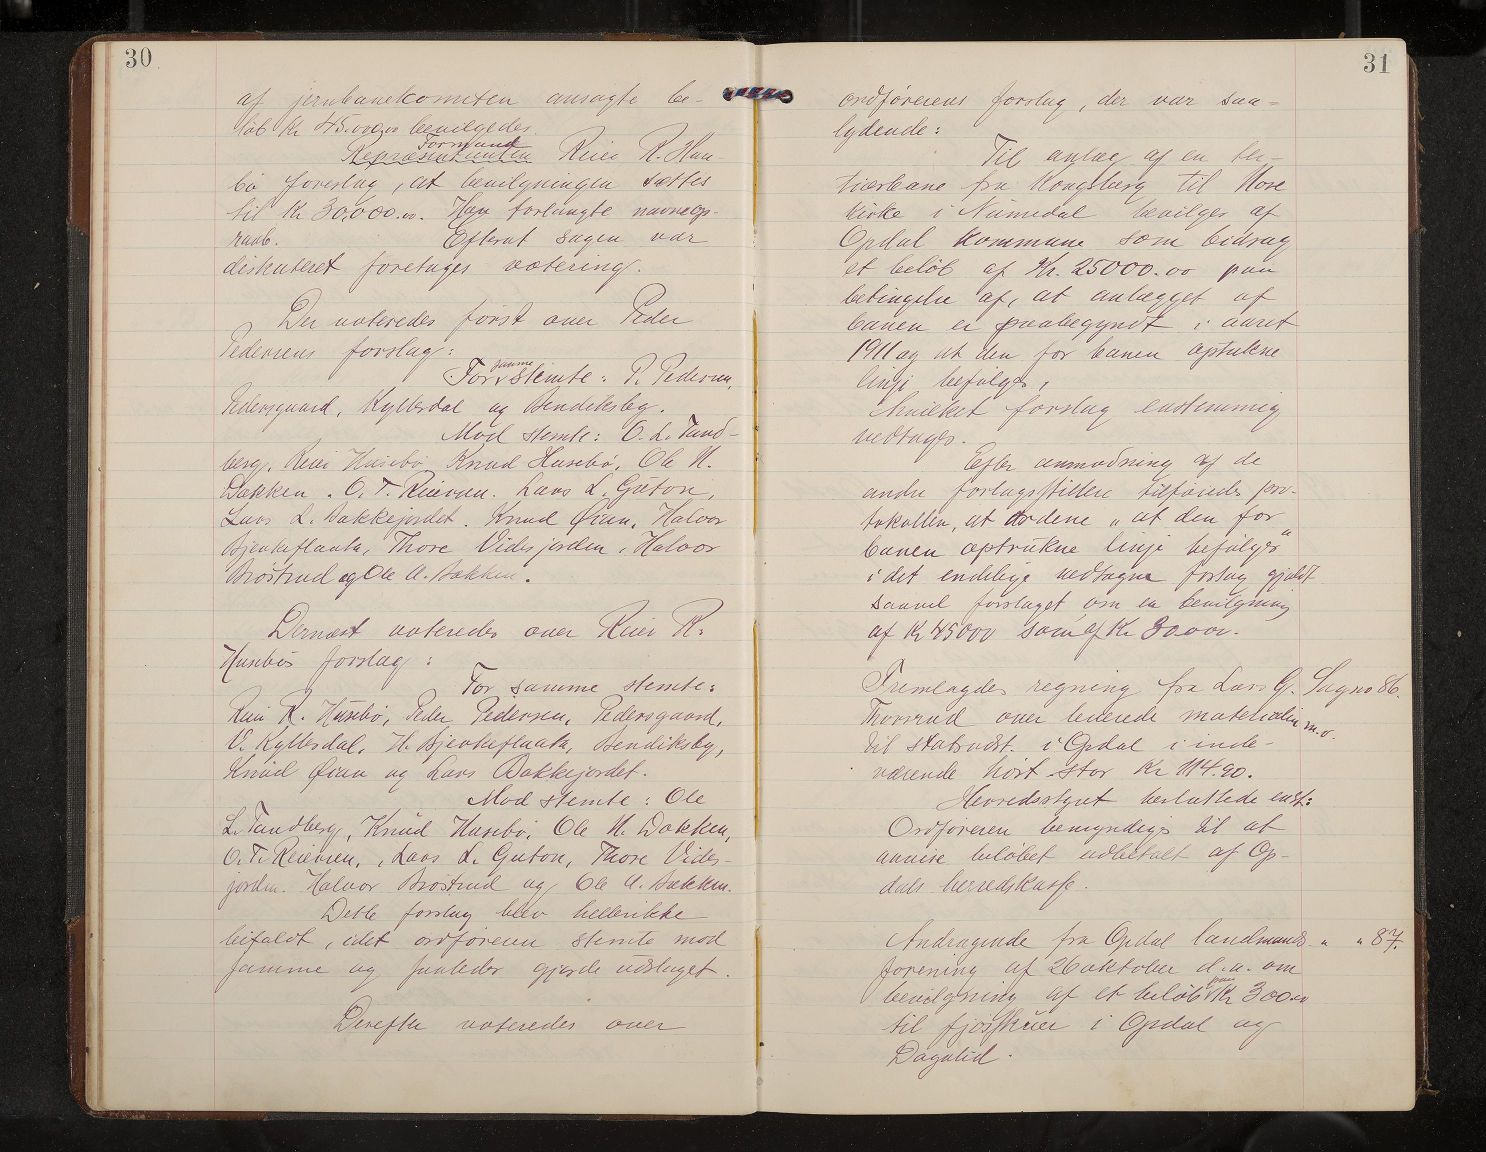 30
af jernbanekomiteen ansøgte be-
løb Kr 45.000,00 bevilgedes.
Formand
Repræsentanten Reier R. Huse-
bø foreslog, at bevilgningen sættes
til Kr 30,000.00. Han forlangte navneop-
raab. Efterat sagen var
diskuteret foretages votering.
Der voteredes først over Peder
Pedersens forslag:
For samme stemte: P. Pedersen,
Pedersgaard, Kyllesdal og Bendiksby.
Mod stemte: O. L. Tand-
berg, Reier Husebø Knud Husebø, Ole H.
Bakken. O. T. Reiersen. Lars L. Guton,
Lars L. Bakkejordet. Knud Øian, Halvor
Bjerkeflaata, Thore Videsjorden, Halvor
Brøstrud og Ole A. Bakken.
Dernæst voteredes over Reier R.
Husebøs forslag:
For samme stemte:
Reier R. Husebø, Peder Pedersen, Pedersgaard,
O. Kyllesdal, H. Bjerkeflaata, Bendiksby,
Knud Øian og Lars Bakkejordet.
Mod stemte: Ole
L. Tandberg, Knud Husebø, Ole H. Bakken,
O. T. Reiersen, Lars L. Guton, Thore Vides-
jorden. Halvor Brøstrud og Ole A. Bakken.
Dette forslag blev hellerikke
bifaldt, idet ordføreren stemte mod
samme og saaledes gjorde udslaget.
Derefter voteredes over
31
ordførerens forslag, der var saa-
lydende:
Til anlæg af en ter-
tiærbane fra Kongsberg til Nore
kirke i Numedal bevilges af
Opdal kommune som bidrag
et beløb af Kr. 25000.00 paa
betingelse af, at anlægget af
banen er paabegyndt i aaret
1911 og at den for banen optrukne
linje befølges,
hvilket forslag enstemmig
vedtages.
Efter anmodning af de
andre forslagsstillere tilføredes pro-
tokollen, at ordene „at den for
banen optrukne linje befølges"
i det endelige vedtagne forslag gjaldt
saavel forslaget om en bevilgning
af Kr 45000 som af Kr 30000.
Fremlagdes regning fra Lars G. Sag no 86.
Thorsrud over leverede materialier m.v.
til skolevæst. i Opdal i inde-
værende høst stor Kr 114.90.
Herredsstyret besluttede enst:
Ordføreren bemyndiges til at
anvise beløbet udbetalt af Op-
dals herredskasse.
Andragende fra Opdal landmands- „ „ 87.
forening af 26 oktober d.a. om
bevilgning af et beløb paa Kr 300.00
til fjøsskuer i Opdal og
Dagalid.